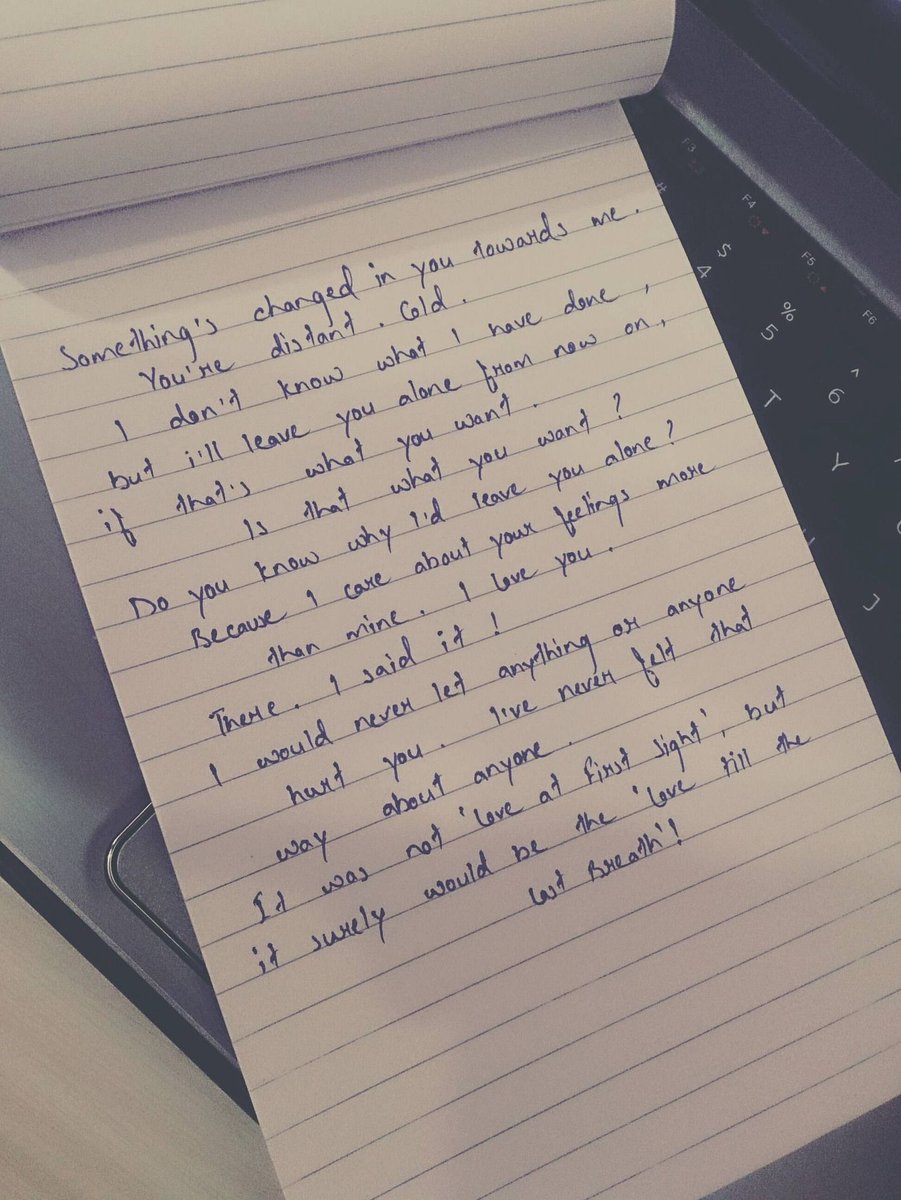 Something's changed in you towards me.
You're distant. Cold.
I don't know what I have done,
but i'll leave you alone from now on,
if that's what you want.
Is that what you want?
Do you know why I'd leave you alone?
Because I care about your feelings more
than mine. I love you.
There. I said it!
I would never let anything or anyone
hurt you. I've never felt that
way about anyone.
It was not 'love at first sight', but
it surely would be the 'love till the
last Breath'!
F3
F4
F5
F6
#
$
4
%
5
^
6
T
Y